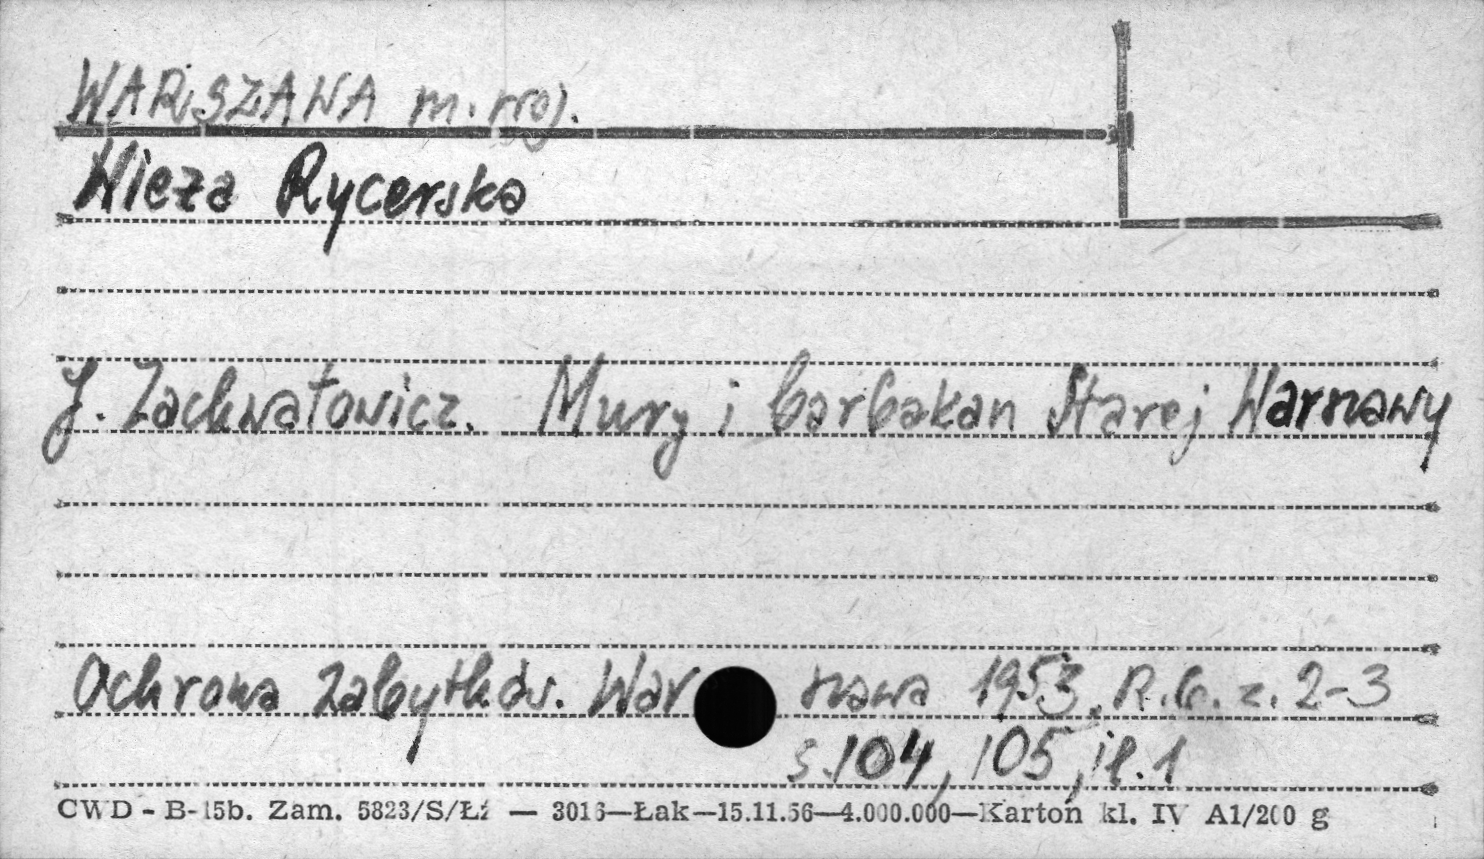 WARSZAWA m. woj.
Wieża Rycerska
J. Zachwatowicz. Mury i barbakan Starej Warszawy
Ochrona Zabytków. Warszawa 1953. R.6. z. 2-3
s. 104, 105, il. 1
CWD - B-15b. Zam. 5823/S/Łź — 3016—Łak—15.11.56—4.000.000—Karton kl. IV A1/200 g